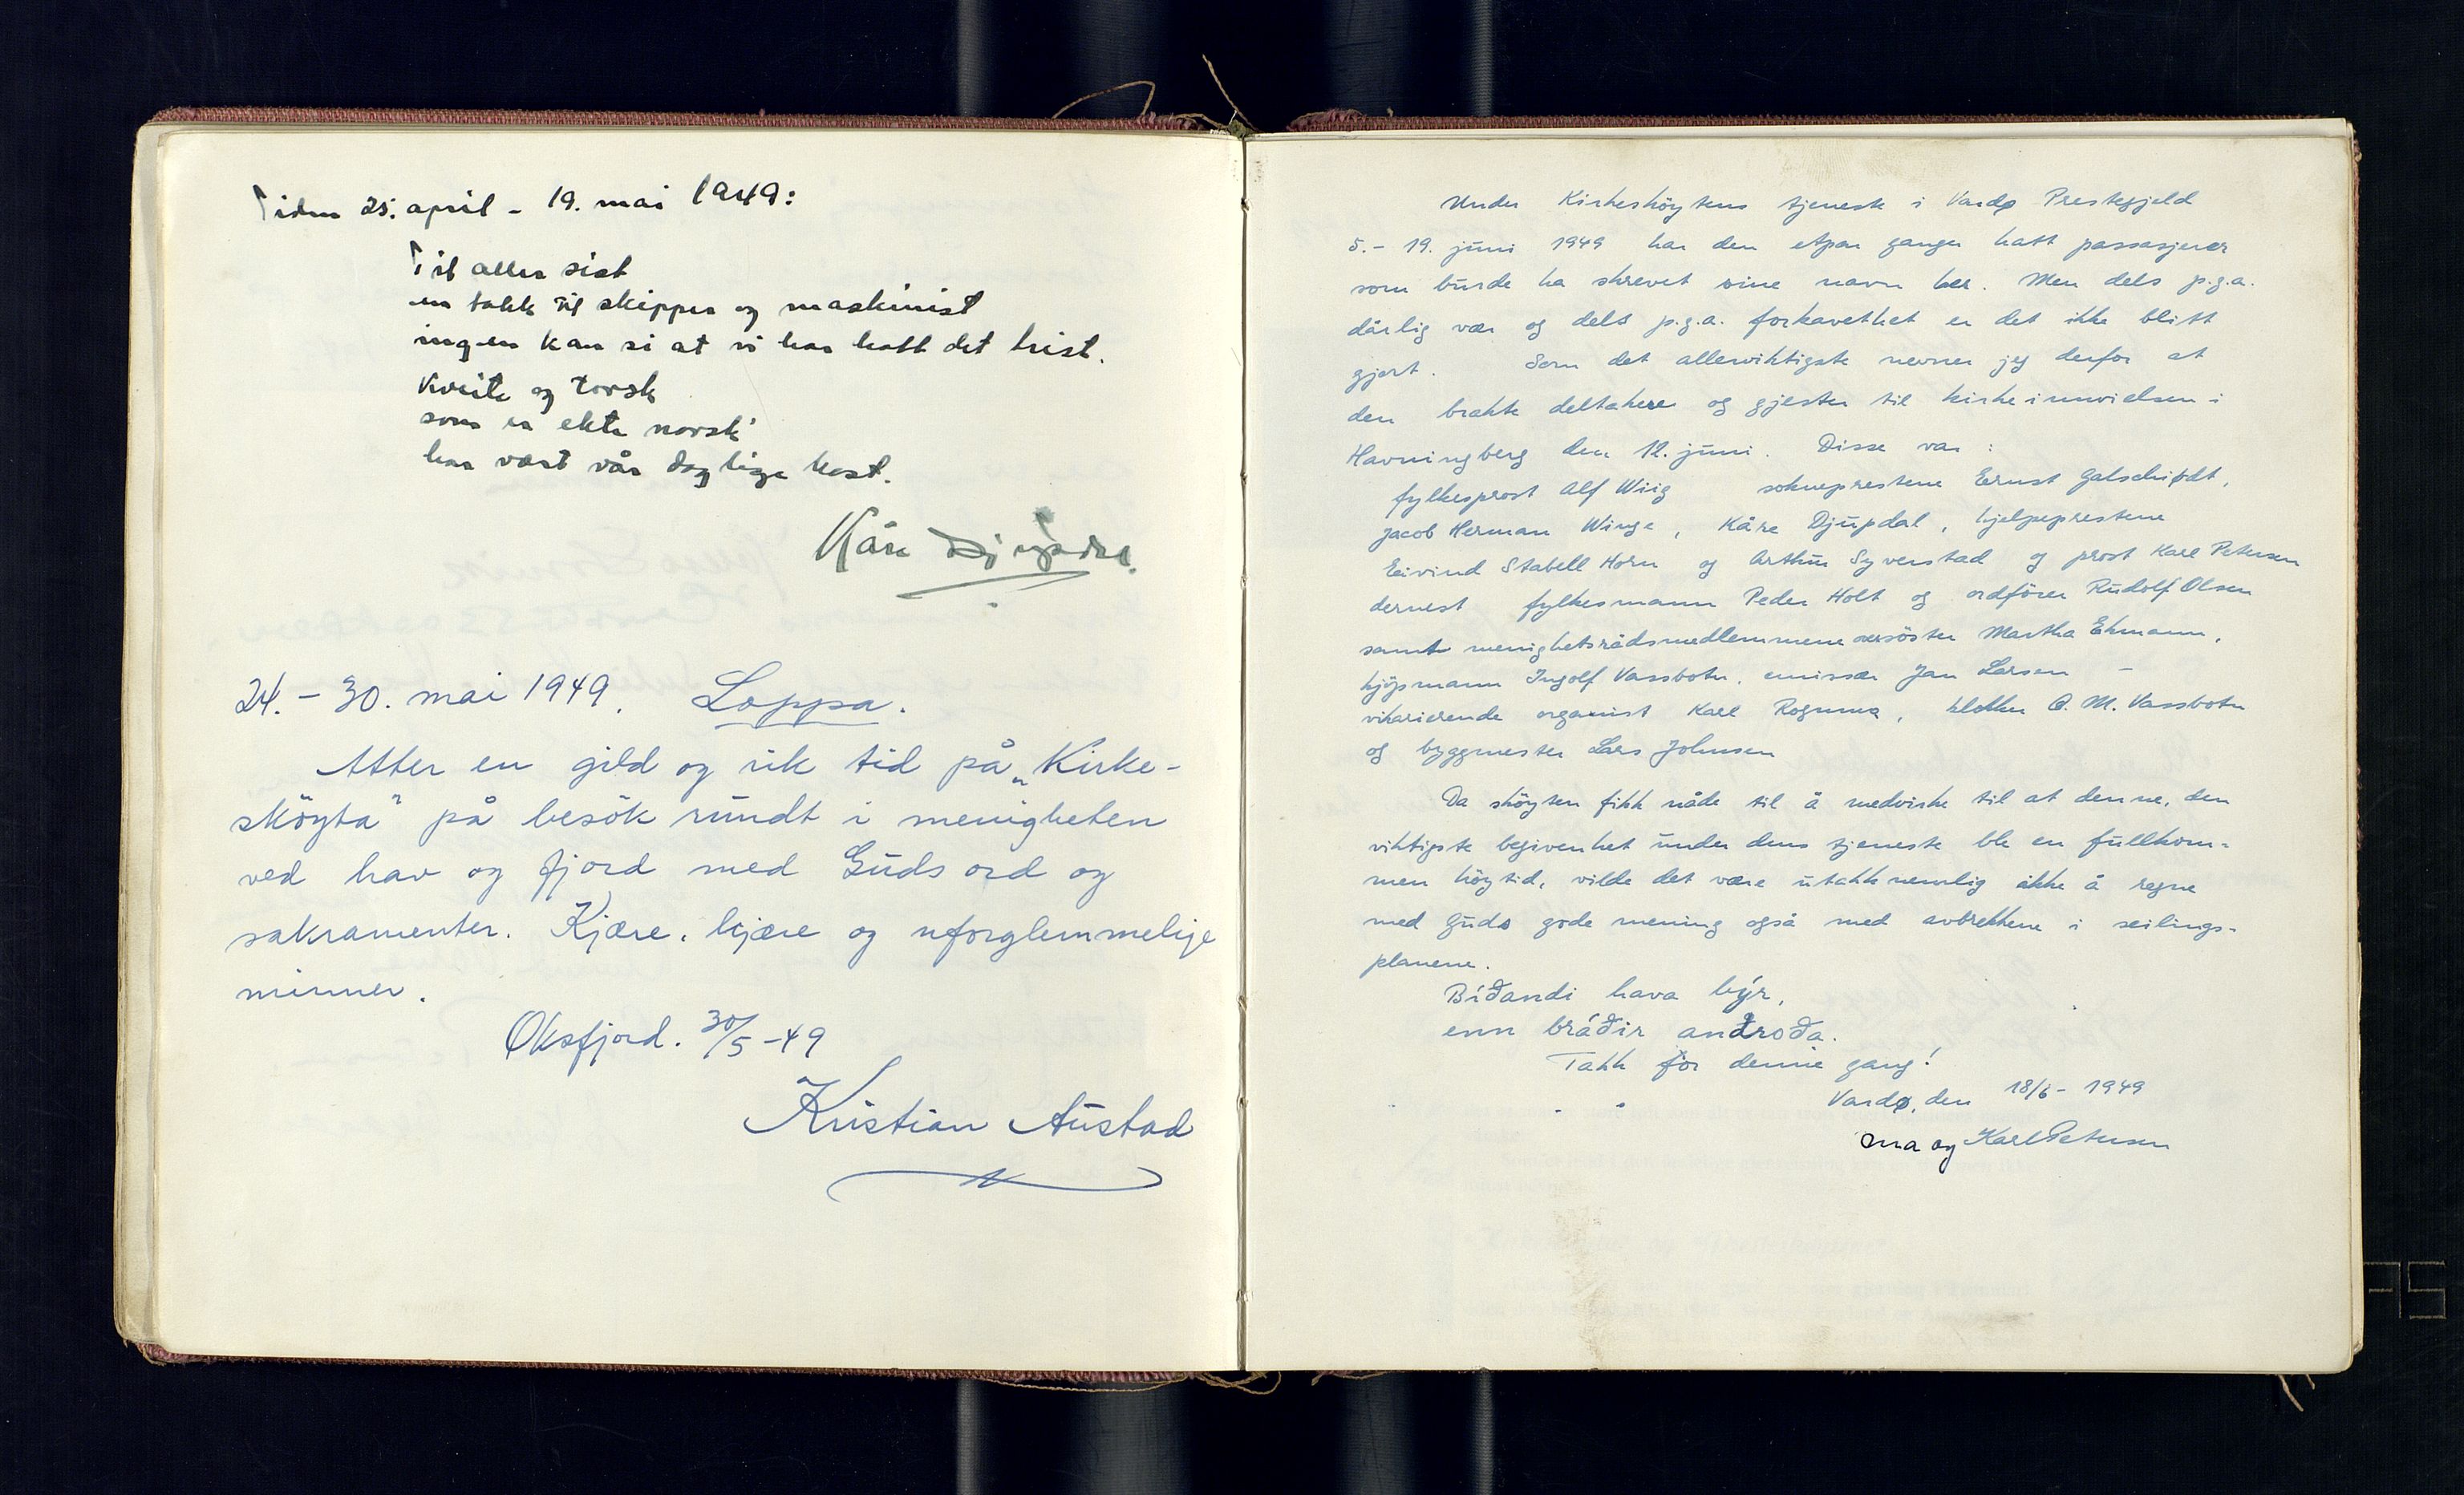 Tiden 25. april - 19. mai 1949:
Til aller sist
en takk til skipper og maskinist
ingen kan si at vi har hatt det trist.
Kveite og torsk
som er ekte norsk
har vært vår daglige kost.
Kåre Djupdal.
24. - 30. mai 1949. Loppa.
Atter en gild og rik tid på „Kirke-
sköyta" på besök rundt i menigheten
ved hav og fjord med Guds ord og
sakramenter. Kjære, kjære og uforglemmelige
minner.
Øksfjord. 30/5 -49
Kristian Austad
Under Kirkesköytens tjeneste i Vardø Prestegjeld
5. - 19. juni 1949 har den etpar ganger hatt passasjerer
som burde ha skrevet sine navn her. Men dels p.g.a.
dårlig vær og dels p.g.a. forkavethet er det ikke blitt
gjort. Som det allerviktigste nevner jeg derfor at
den brakte deltakere og gjester til kirkeinnvielsen i
Havningberg den 12. juni. Disse var :
fylkesprost Alf Wiig sokneprestene Ernst Galschiødt,
Jacob Herman Winge, Kåre Djupdal, hjelpeprestene
Eivind Stabell Horn og Arthur Syverstad og prost Karl Petersen
dernest fylkesmann Peder Holt og ordförer Rudolf Olsen
samt menighetsrådsmedlemmene oversöster Martha Ehmann,
kjöpmann Ingolf Vassbotn, emissær Jan Larsen -
vikarierende organist Karl Rognmo, klokker O. M. Vassbotn
og byggmester Lars Johnsen
Da sköyten fikk nåde til å medvirke til at denne, den
viktigste begivenhet under dens tjeneste ble en fullkom-
men höytid, vilde det være utakknemlig ikke å regne
med Guds gode mening også med avbrekkene i seilings-
planene.
Bíðandi hava býr,
enn bráðir andróða.
Takk for denne gang!
Vardø, den 18/6 - 1949
Ona og Karl Petersen